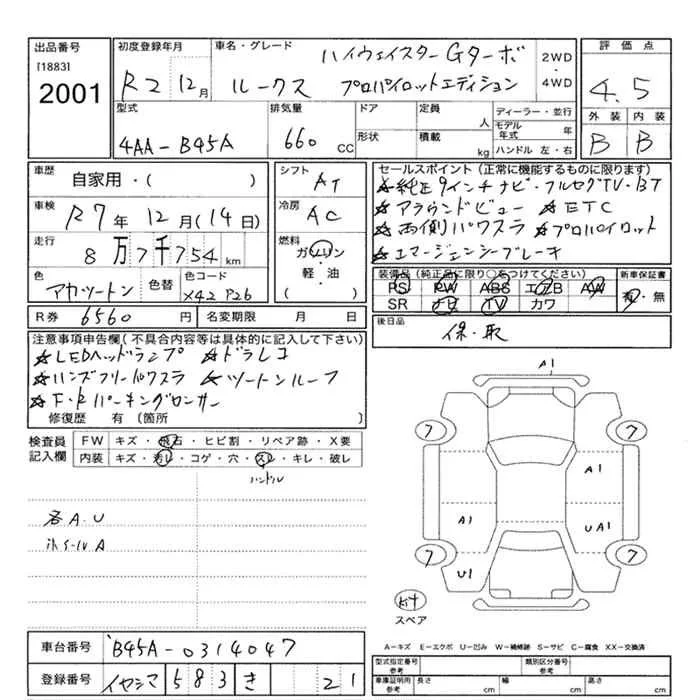 出品番号
[1883]
2001
初度登録年月
R2 12月
車名・グレード
ハイウェイスター Gターボ
ルークス プロパイロットエディション
2WD
4WD
評価点
4.5
外装 内装
B B
型式
4AA-B45A
排気量
660 CC
ドア
形状
定員
人
積載
kg
ディーラー・並行
モデル年式 年
ハンドル 左・右
車歴
自家用・( )
車検
R7年12月(14日)
走行
8万7千754km
色
アカツートン
色替
色コード
X42 P26
シフト
AT
冷房
AC
燃料
ガソリン
軽・油
( )
セールスポイント(正常に機能するものに限ります)
★純正9インチナビ・フルセグTV・BT
★アラウンドビュー ★ETC
★両側パワスラ ★プロパイロット
★エマージェンシーブレーキ
装備品(純正品に限り○をつけてください)
PS PW ABS エアB AW
SR ナビ TV カワ
新車保証書
有・無
R券 6560円
名変期限 月 日
後日品
保・取
注意事項申告欄(不具合内容等は具体的に記入して下さい)
★LEDヘッドランプ ★ドラレコ
★ハンズフリーパワスラ ★ツートンルーフ
★F・Rパーキングソナー
修復歴 有(箇所 )
検査員記入欄
FW キズ・飛石・ヒビ割・リペア跡・X要
内装 キズ・汚レ・コゲ・穴・スレ・キレ・破レ
ハンドル
各A.U
ホイールA
A1
フ フ
A1
A1 UA1
フ フ
U1
スペア
A=キズ E=エクボ U=凹み W=補修跡 S=サビ C=腐食 XX=交換済
車台番号 B45A-0314047
登録番号 583き 21
型式指定番号 参考
類別区分番号 参考
車庫証明用 参考
長さ cm 幅 cm 高さ cm